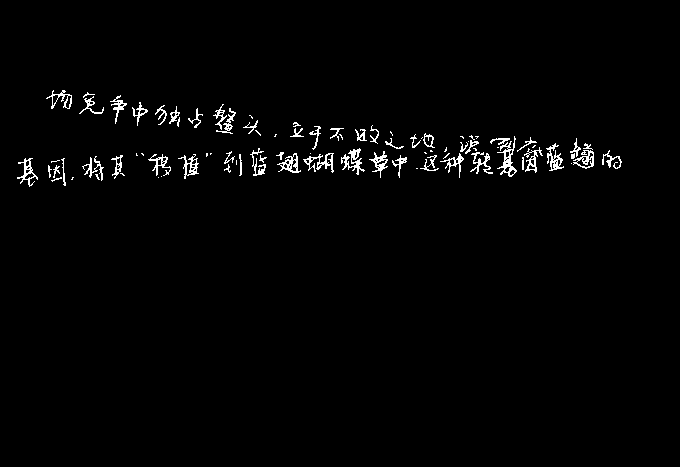 场竞争中独占鳌头，立于不败之地，
基因，将其“移植”到蓝翅蝴蝶草中.这种转基因蓝翅的